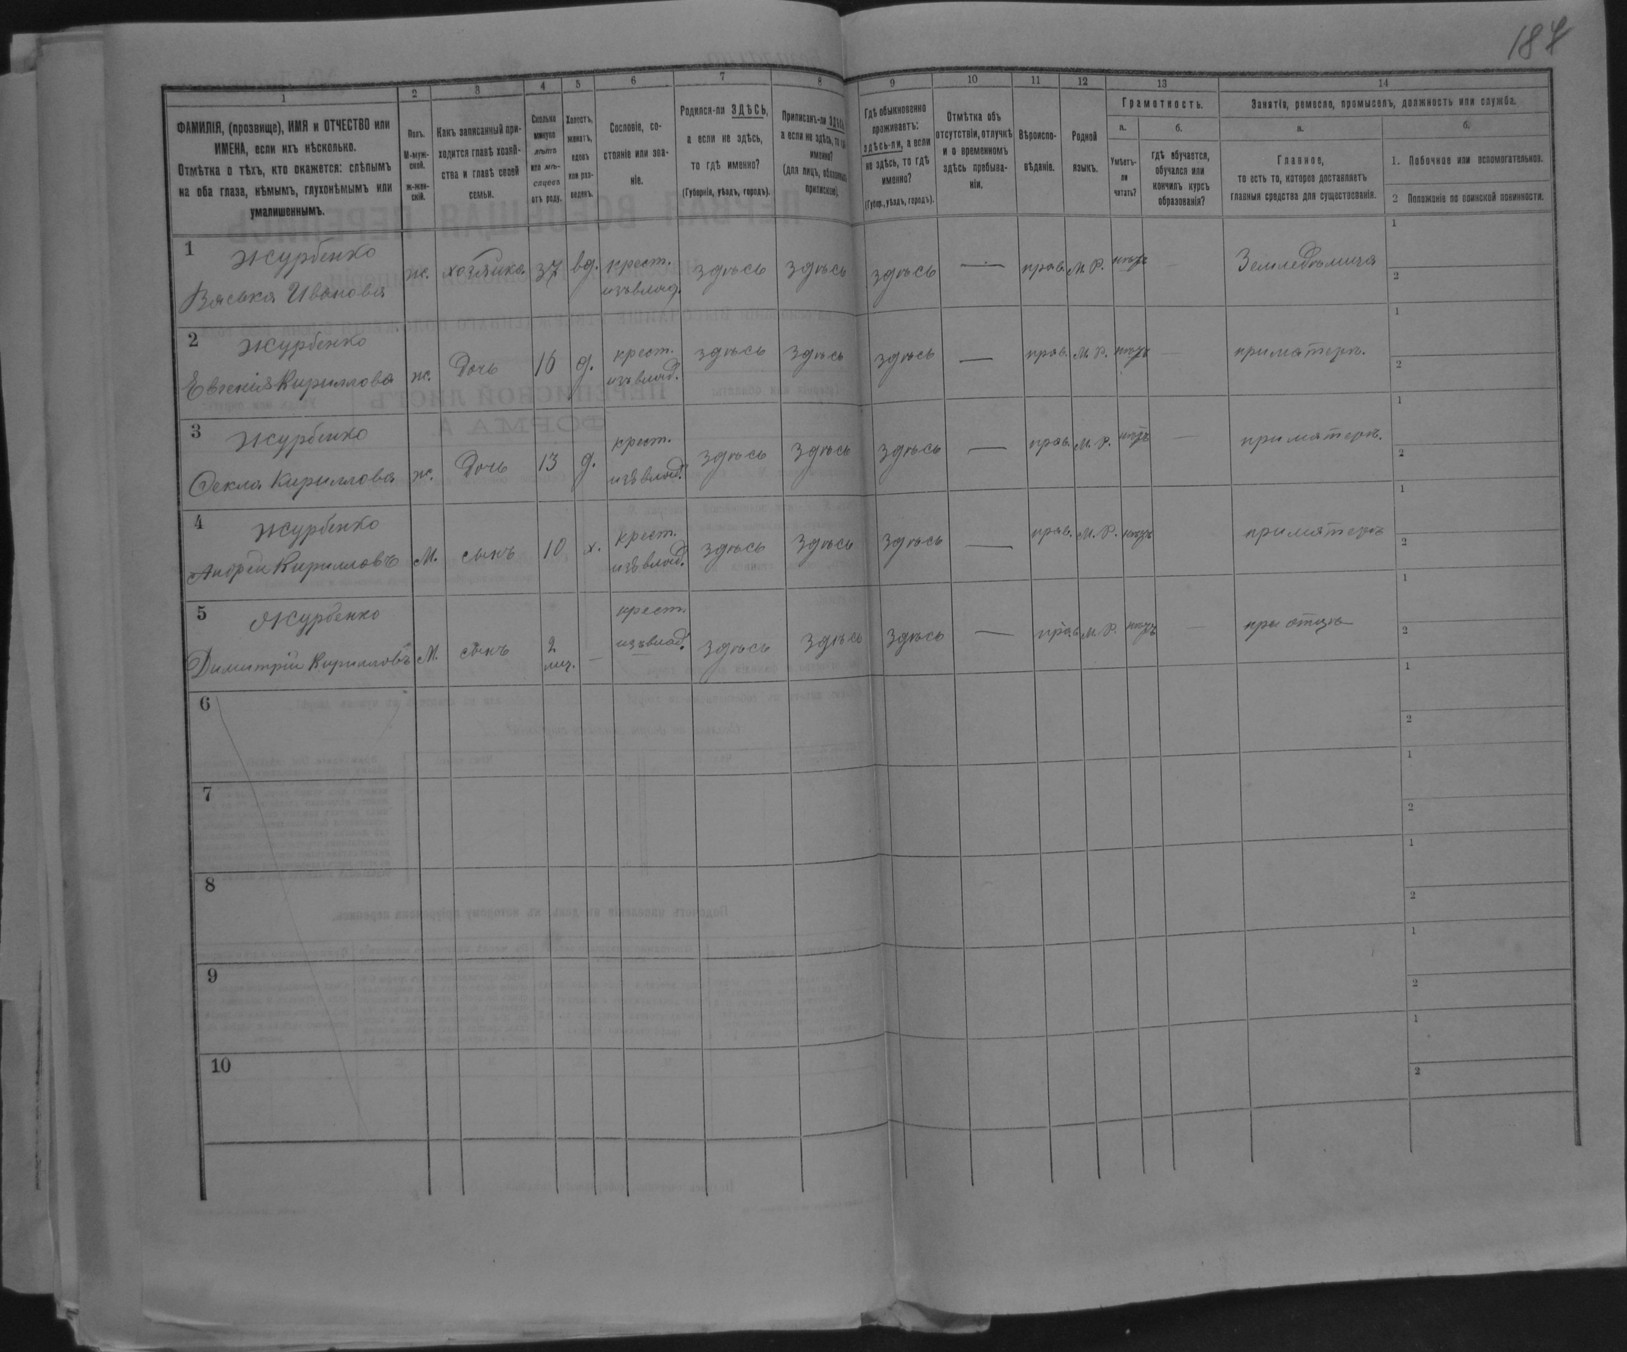 187
1
2
3
4
5
6
7
8
9
10
11
12
13
14
ФАМИЛІЯ, (прозвище), ИМЯ и ОТЧЕСТВО или ИМЕНА, если ихъ нѣсколько.
Отмѣтка о тѣхъ, кто окажется: слѣпымъ на оба глаза, нѣмымъ, глухонѣмымъ или умалишеннымъ.
Полъ.
М-муж-
ской.
Ж-жен-
скій.
Какъ записанный при-
ходится главѣ хозяй-
ства и главѣ своей
семьи.
Сколько
минуло
лѣтъ
или мѣ-
сяцевъ
отъ роду.
Холостъ,
женатъ,
вдовъ
или раз-
веденъ.
Сословіе, со-
стояніе или зва-
ніе.
Родился-ли ЗДѢСЬ,
а если не здѣсь,
то гдѣ именно?
(Губернія, уѣздъ, городъ).
Приписанъ-ли ЗДѢСЬ,
а если не здѣсь, то гдѣ
именно?
(для лицъ, обязанныхъ
припискою).
Гдѣ обыкновенно
проживаетъ:
здѣсь-ли, а если
не здѣсь, то гдѣ
именно?
(Губер., уѣздъ, городъ).
Отмѣтка объ
отсутствіи, отлучкѣ
и о временномъ
здѣсь пребыва-
ніи.
Вѣроиспо-
вѣданіе.
Родной
языкъ.
Грамотность.
а.
б.
Умѣетъ-
ли
читать?
гдѣ обучается,
обучался или
кончилъ курсъ
образованія?
Занятія, ремесло, промыселъ, должность или служба.
а.
б.
Главное,
то есть то, которое доставляетъ
главныя средства для существованія.
1. Побочное или вспомогательное.
2 Положеніе по воинской повинности.
1 Журбенко
Васька Иванова ж. хозяйка 37 вд. крест. изъ влад. здѣсь здѣсь здѣсь — прав. М. Р. нѣтъ — Земледѣлица 1 2
2 Журбенко
Евгенія Кириллова ж. дочь 16 д. крест. изъ влад. здѣсь здѣсь здѣсь — прав. М. Р. нѣтъ — при матери. 1 2
3 Журбенко
Фекла Кириллова ж. дочь 13 д. крест. изъ влад. здѣсь здѣсь здѣсь — прав. М. Р. нѣтъ — при матери. 1 2
4 Журбенко
Андрей Кирилловъ М. сынъ 10 х. крест. изъ влад. здѣсь здѣсь здѣсь — прав. М. Р. нѣтъ при матери 1 2
5 Журбенко
Димитрій Кирилловъ М. сынъ 2 — крест. изъ влад. здѣсь здѣсь здѣсь — прав. М. Р. нѣтъ — при отцѣ 1 2
6 1 2
7 1 2
8 1 2
9 1 2
10 1 2